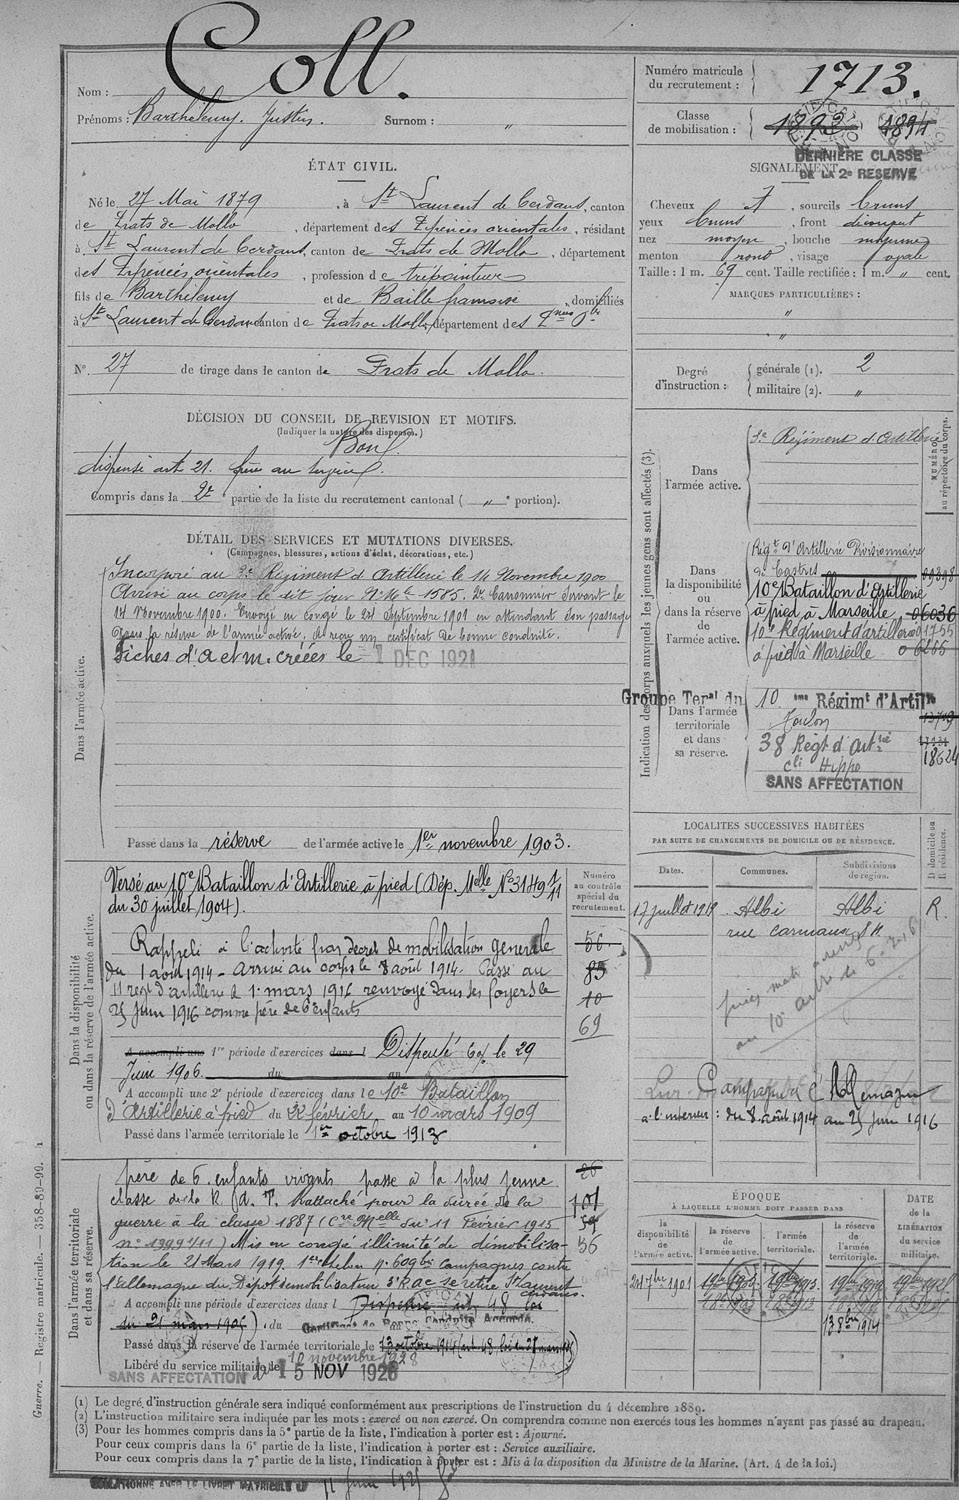 Nom : Coll.
Prénoms : Barthélemy. Justin. Surnom : "
Numéro matricule du recrutement : 1713.
Classe de mobilisation : 1892 1894
DERNIÈRE CLASSE
DE LA 2e RESERVE
ÉTAT CIVIL.
Né le 27 Mai 1879, à St Laurent de Cerdans, canton
de Prats de Mollo, département des Pyrénées orientales, résidant
à St Laurent de Cerdans, canton de Prats de Mollo, département
des Pyrénées orientales, profession de trépointeur
fils de Barthélemy et de Baille françoise, domiciliés
à St Laurent de Cerdans canton de Prats de Mollo, département des Pnées Oles
N° 27 de tirage dans le canton de Prats de Mollo.
SIGNALEMENT
Cheveux , sourcils bruns
yeux bruns, front découvert
nez moyen, bouche moyenne
menton rond, visage ovale
Taille : 1 m. 69 cent. Taille rectifiée : 1 m. " cent.
MARQUES PARTICULIÈRES :
"
"
Degré d'instruction : générale (1). 2
militaire (2). "
DÉCISION DU CONSEIL DE REVISION ET MOTIFS.
(Indiquer la nature des dispenses.)
Bon.
dispensé art. 21. frère au service.
Compris dans la 2e partie de la liste du recrutement cantonal ( " e portion).
DÉTAIL DES SERVICES ET MUTATIONS DIVERSES.
(Campagnes, blessures, actions d'éclat, décorations, etc.)
Dans l'armée active.
Incorporé au 3e Régiment d'Artillerie le 14 Novembre 1900
Arrivé au corps le dit jour N° Mle 1585. 2e Canonnier servant le
14 Novembre 1900. Envoyé en congé le 24 Septembre 1901 en attendant son passage
dans la réserve de l'armée active. A reçu un certificat de bonne conduite.
Fiches d'A et M. créées le 1 DEC 1921
Passé dans la réserve de l'armée active le 1er novembre 1903.
Indication des corps auxquels les jeunes gens sont affectés (3).
NUMÉRO au répertoire du corps.
Dans l'armée active.
3e Régiment d'Artillerie
Dans la disponibilité ou dans la réserve de l'armée active.
Régt d'Artillerie Divisionnaire
de Castres 09398
10e Bataillon d'Artillerie
à pied à Marseille 06036
10e Régiment d'artillerie 01755
à pied à Marseille 06265
Dans l'armée territoriale et dans sa réserve.
Groupe Teral du 10 eme Régimt d'Artie
Toulon 13719
38 Régt d'Artie
18624
Hippo
SANS AFFECTATION
Dans la disponibilité ou dans la réserve de l'armée active.
Numéro au contrôle spécial du recrutement.
Versé au 10e Bataillon d'Artillerie à pied (Dép. Melle No 3149 1/11
du 30 juillet 1904).
Rappelé à l'activité par décret de mobilisation générale
du 1 août 1914 - Arrivé au corps le 8 août 1914. Passé au
11 régt d'artillerie le 1er mars 1916 renvoyé dans ses foyers le
25 juin 1916 comme père de 6 enfants
56
85
10
69
A accompli une 1re période d'exercices dans l Dispensé le 29
Juin 1906. du au
A accompli une 2e période d'exercices dans le 10e Bataillon
d'Artillerie à pied du février au 10 mars 1909
Passé dans l'armée territoriale le 1er octobre 1913
LOCALITÉS SUCCESSIVES HABITÉES
PAR SUITE DE CHANGEMENTS DE DOMICILE OU DE RÉSIDENCE.
Dates. Communes. Subdivisions de région. D domicile ou R résidence.
17 juillet 1919 Albi Albi R.
rue carmaux
Campagne contre l'Allemagne
à l'intérieur : du 8 août 1914 au 25 juin 1916
Dans l'armée territoriale et dans sa réserve.
père de 6 enfants vivants passe à la plus jeune
classe de la R. d. T. Rattaché pour la durée de la
guerre à la classe 1887 (Cre Melle du 11 Février 1915
no 1999 1/11) Mis en congé illimité de démobilisa-
tion le 21 Mars 1919. 1er échelon n. 609 bis campagnes contre
l'allemagne du Dépôt démobilisateur 3e RAC se retire St Laurent
cerdans.
56
A accompli une période d'exercices dans l Dispensé 48 loi
du 21 mars 1905, du
Certificat de Bonne Conduite Accordé.
Passé dans la réserve de l'armée territoriale le 13 octobre 1914
Libéré du service militaire le 10 novembre 1928
15 NOV 1928
SANS AFFECTATION
ÉPOQUE
À LAQUELLE L'HOMME DOIT PASSER DANS
la disponibilité de l'armée active. la réserve de l'armée active. l'armée territoriale. la réserve de l'armée territoriale.
DATE de la LIBÉRATION du service militaire.
24 7bre 1901
13 8bre 1914
(1) Le degré d'instruction générale sera indiqué conformément aux prescriptions de l'instruction du 4 décembre 1889.
(2) L'instruction militaire sera indiquée par les mots : exercé ou non exercé. On comprendra comme non exercés tous les hommes n'ayant pas passé au drapeau.
(3) Pour les hommes compris dans la 5e partie de la liste, l'indication à porter est : Ajourné.
Pour ceux compris dans la 6e partie de la liste, l'indication à porter est : Service auxiliaire.
Pour ceux compris dans la 7e partie de la liste, l'indication à porter est : Mis à la disposition du Ministre de la Marine. (Art. 4 de la loi.)
COLLATIONNÉ AVEC LE LIVRET MATRICULE
Guerre. — Registre matricule. — 358-89-99.